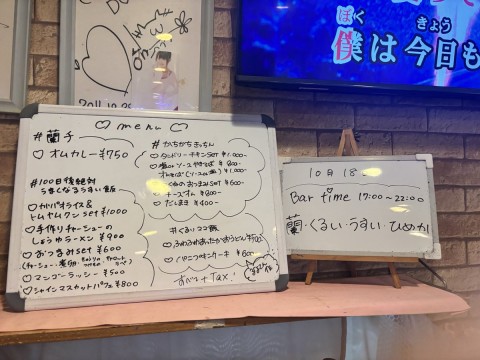 ぼく
きょう
僕は今日も
♡ menu ♡
#蘭子
♡オムカレー ¥750
#100日後絶対
うまくなるうすい飯
♡ガパオライス＆
トムヤムクンset ¥1000
♡手作りチャーシューの
しょうゆラーメン ¥900
♡おつまみset ¥600
♡マンゴーラッシー ¥500
♡シャインマスカットパフェ ¥800
#かちかちきっちん
♡タンドリーチキンSET ¥1,000-
¥800-
¥1,000-
のおつまみSET ¥600-
♡チーズオム ¥800-
♡だしまき ¥400-
#くるりココ飯
¥600-
すべて+Tax!
10月18
Bar time 17:00～22:00
蘭・くるい・うすい・ひめか